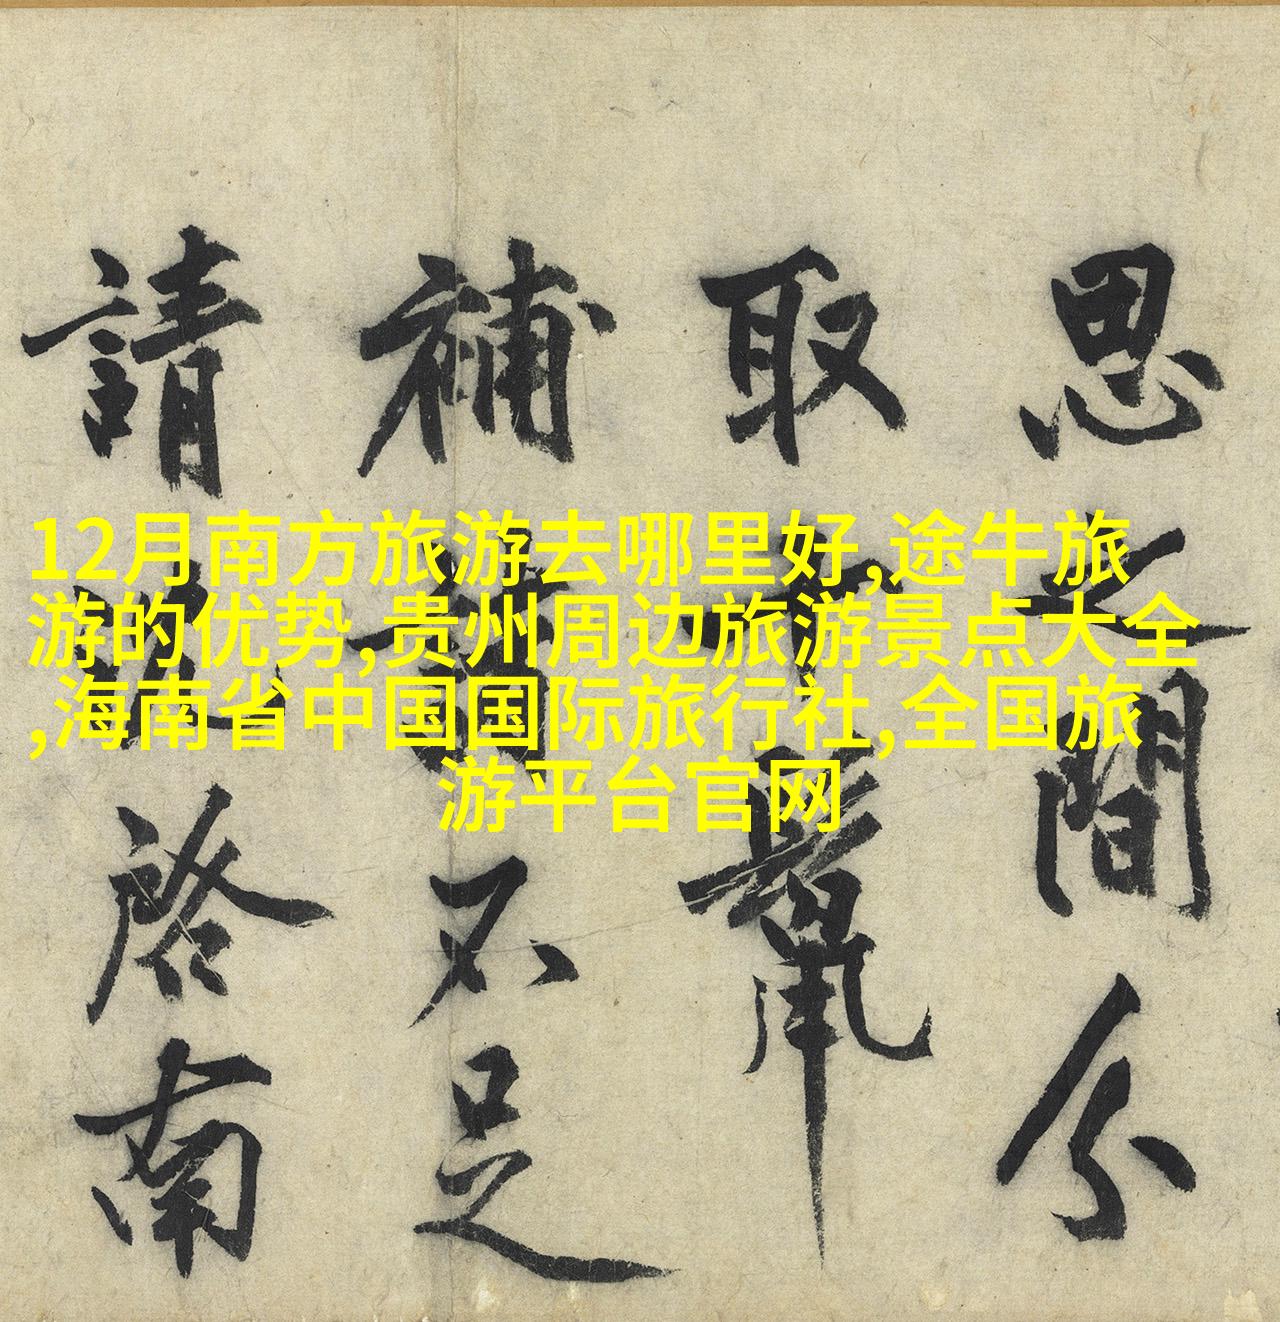 12月南方旅游去哪里好,途牛旅
游的优势,贵州周边旅游景点大全
,海南省中国国际旅行社,全国旅
游平台官网
思之間分
取
補 不足
請 啓南